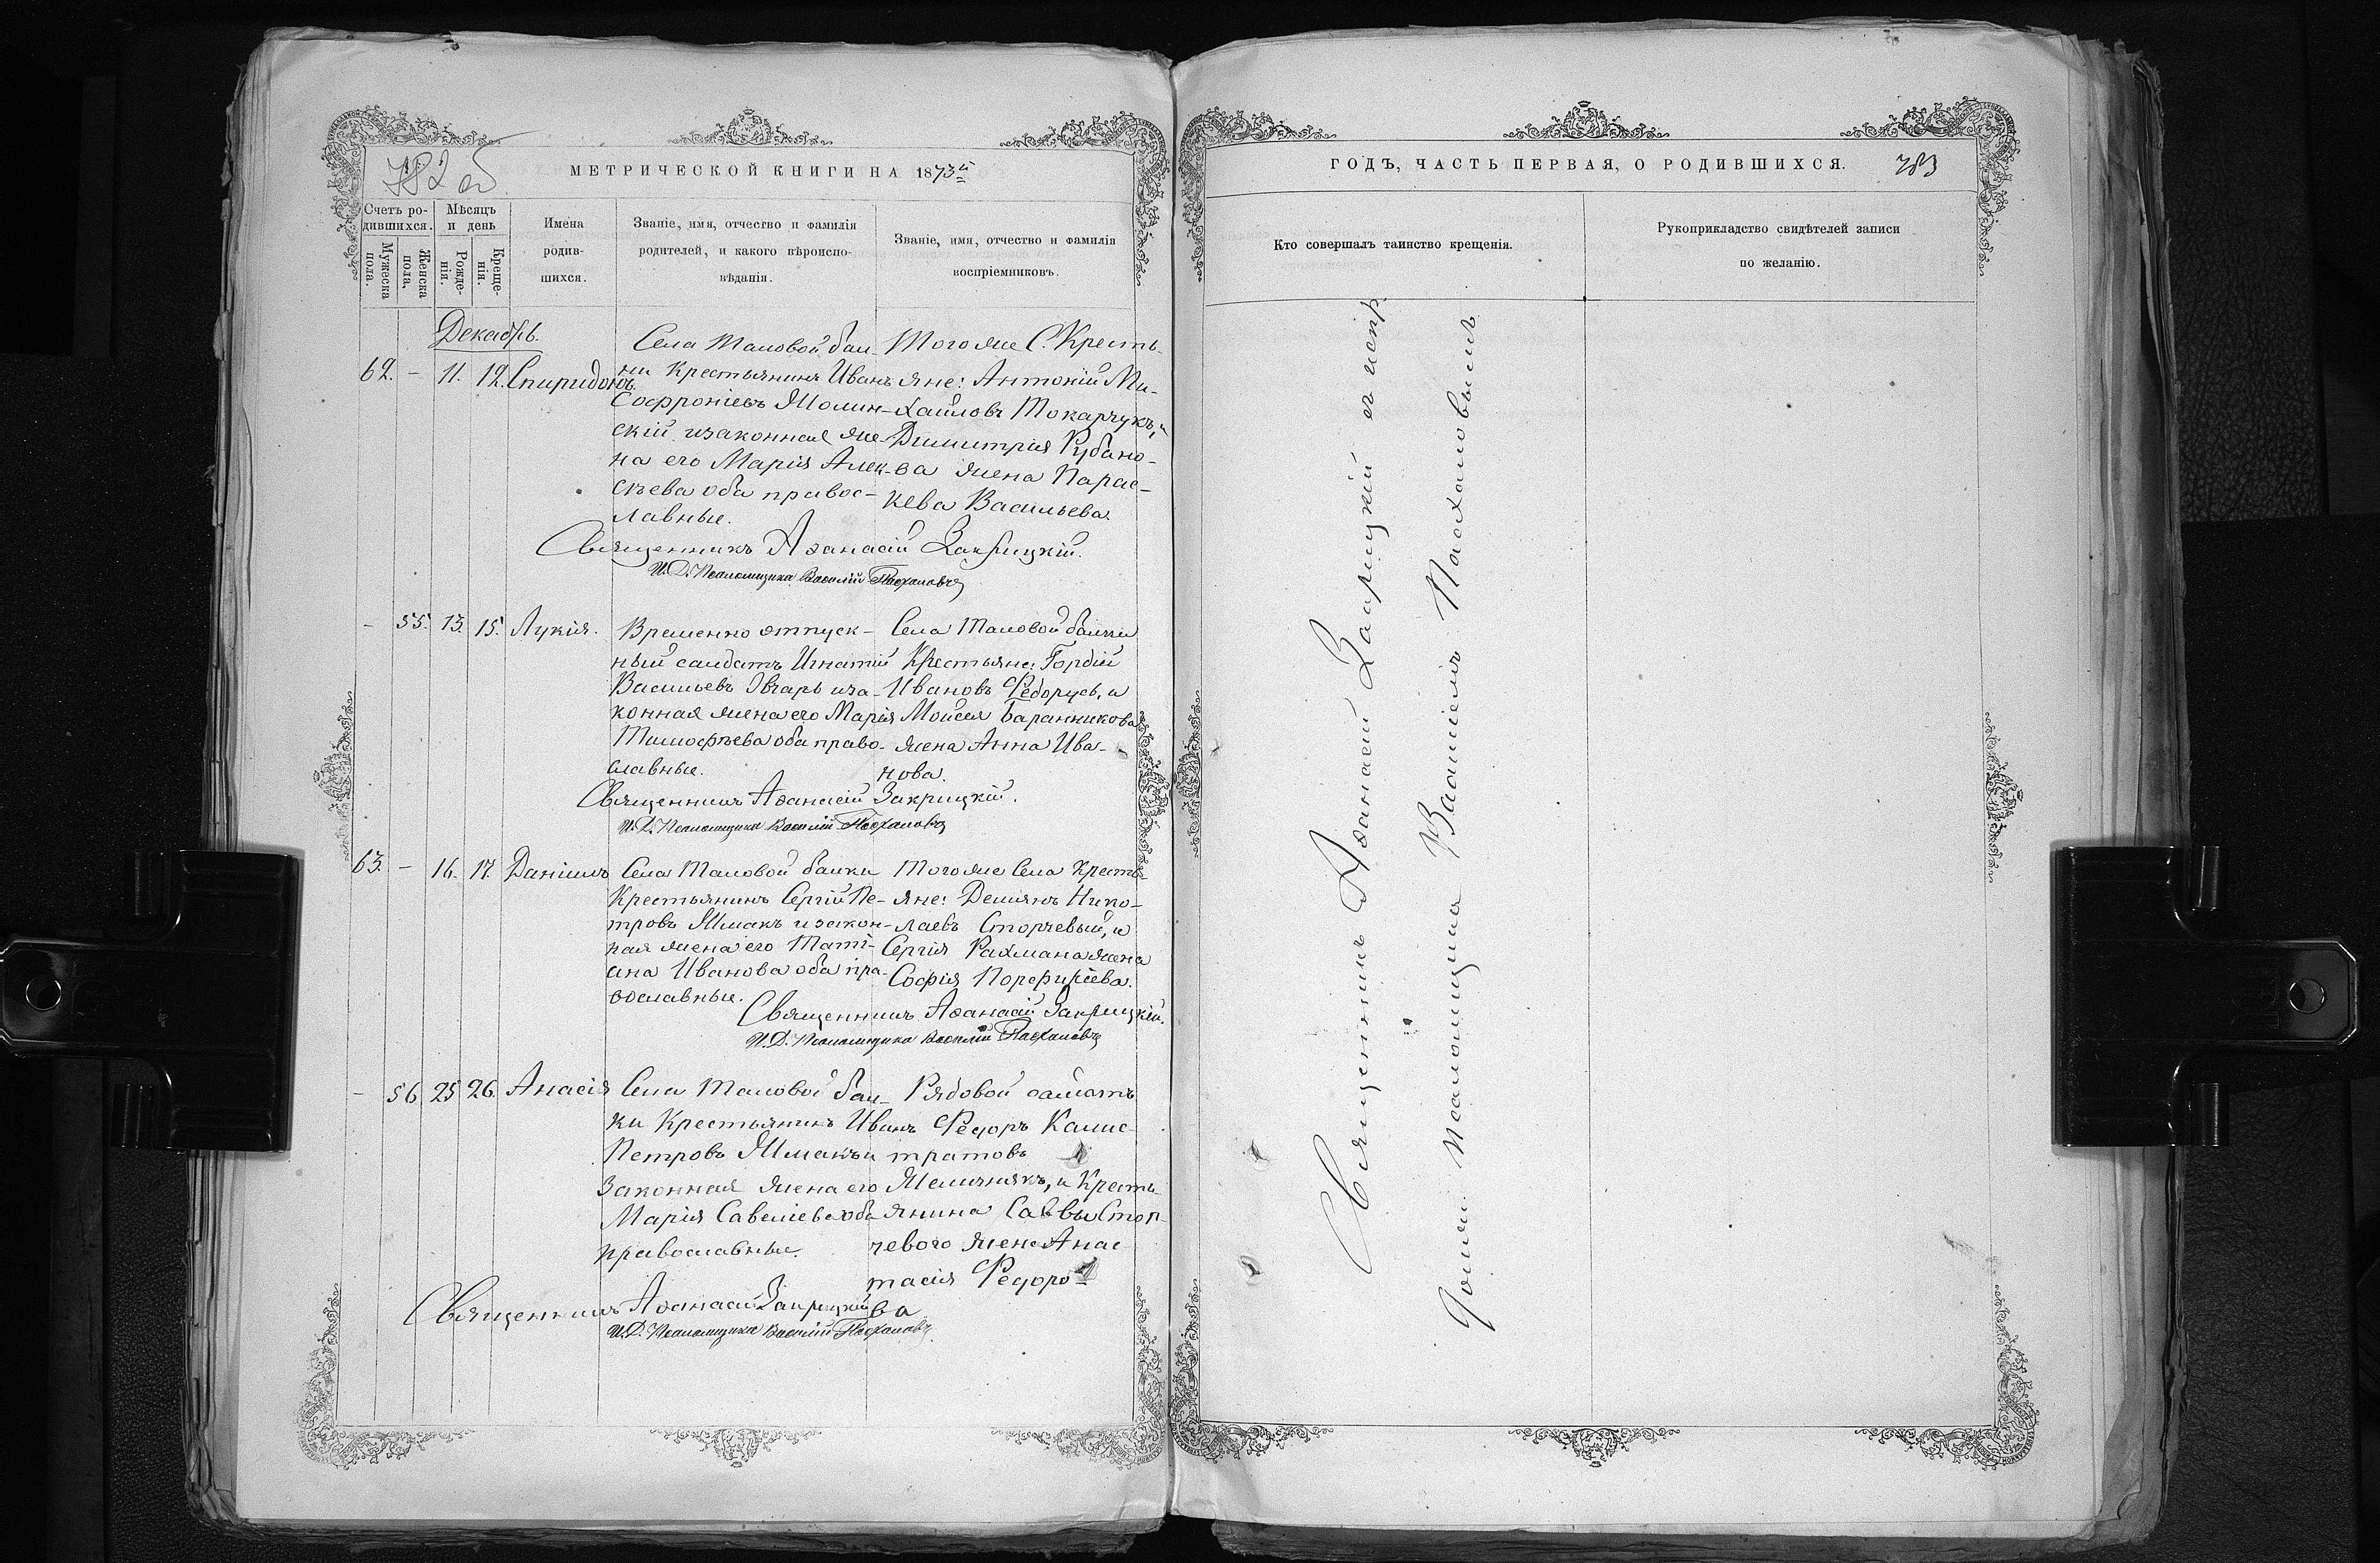 782 об
МЕТРИЧЕСКОЙ КНИГИ НА 1873й
Счетъ ро-
дившихся.
Мужеска
пола.
Женска
пола.
Мѣсяцъ
и день
Рожде-
нія.
Креще-
нія.
Имена
родив-
шихся.
Званіе, имя, отчество и фамилія
родителей, и какого вѣроиспо-
вѣданія.
Званіе, имя, отчество и фамилія
воспріемниковъ.
Декабрь.
62. - 11. 12. Спиридонъ
Села Таловой бал-
ки Крестьянинъ Иванъ
Софроніевъ
скій изаконная же-
на его Марія Алек-
сѣева оба правос-
лавные.
Того же С. Кресть-
яне: Антоній Ми-
хайловъ Токарчукъ, и
Димитрія Рубано-
ва жена Парас-
кева Васильева.
Священникъ Аѳанасій Закрицкій.
И.Д. Псаломщика Василій Пасхаловъ
- 55. 13. 15. Лукія.
Временно отпуск-
ный солдатъ Игнатій
Васильевъ Овчарь иза-
конная жена его Марія
Тимофѣева оба право-
славные.
Села Таловой балки
Крестьяне: Гордій
Ивановъ Федорусь, и
Моисея Баранникова
жена Анна Ива-
нова.
Священникъ Аѳанасій Закрицкій.
И.Д. Псаломщика Василій Пасхаловъ
63. - 16. 17. Даніилъ
Села Таловой балки
Крестьянинъ Сергій Пе-
тровъ Шмакъ изакон-
ная жена его Таті-
ана Иванова оба пра-
вославные.
Того же Села Кресть-
яне: Деміянъ Нико-
лаевъ Сторчевый, и
Сергія Рахмана жена
Софія Порфиріева.
Священникъ Аѳанасій Закрицкій.
И.Д. Псаломщика Василій Пасхаловъ
- 56. 25 26. Анасія
Села Таловой бал-
ки Крестьянинъ Иванъ
Петровъ Шмакъ и
законная жена его
Марія Савеліева оба
православные.
Рядовой
Федоръ Калис-
тратовъ
Мельникъ, и Кресть-
янина Саввы Стор-
чевого жена Анас-
тасія Федоро-
ва
Священникъ Аѳанасій Закрицкій
И.Д. Псаломщика Василій Пасхаловъ
ГОДЪ, ЧАСТЬ ПЕРВАЯ, О РОДИВШИХСЯ.
783
Кто совершалъ таинство крещенія.
Рукоприкладство свидѣтелей записи
по желанію.
Священникъ Аѳанасій Закрицкій съ испр.
долж. псаломщика Василіемъ Пасхаловымъ